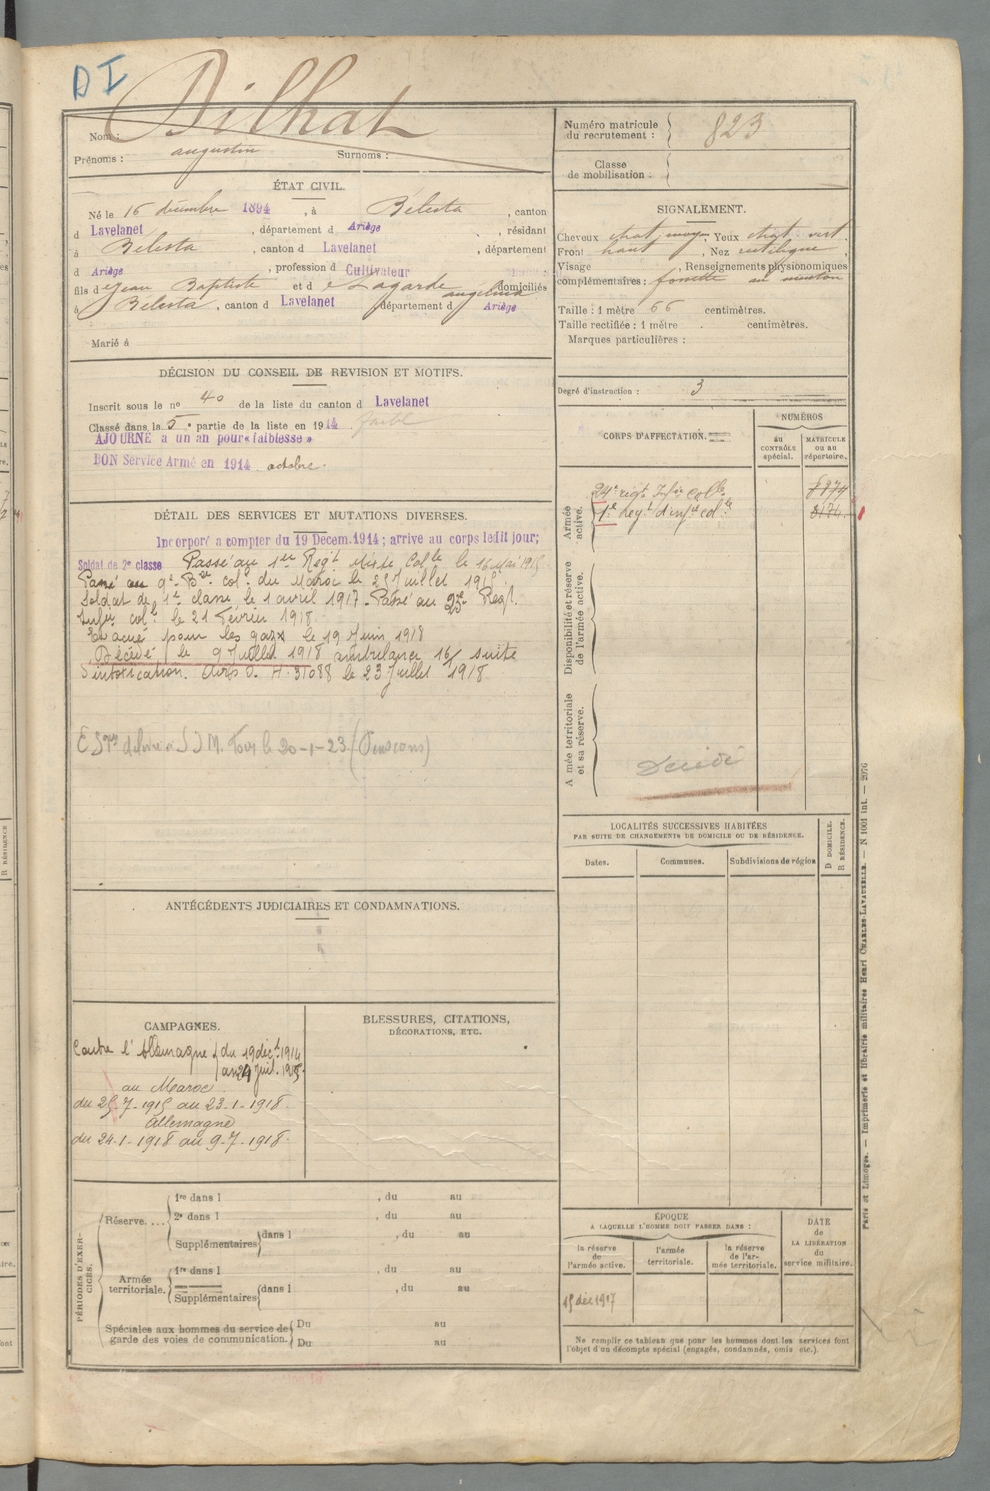 D I
Dilhat
Nom :
Prénoms : augustin Surnoms :
Numéro matricule du recrutement : 823
Classe de mobilisation :
ÉTAT CIVIL.
Né le 16 décembre 1894, à Bélesta, canton
d Lavelanet, département d Ariège, résidant
à Bélesta, canton d Lavelanet, département
d Ariège, profession d Cultivateur
fils de Jean Baptiste et d e Lagarde angelina domiciliés
à Bélesta, canton d Lavelanet département d Ariège
Marié à
SIGNALEMENT.
Cheveux chat. moyen, Yeux chat. vert.
Front haut, Nez rectiligne
Visage , Renseignements physionomiques
complémentaires : fossette au menton
Taille : 1 mètre 66 centimètres.
Taille rectifiée : 1 mètre . centimètres.
Marques particulières :
Degré d'instruction : 3
DÉCISION DU CONSEIL DE REVISION ET MOTIFS.
Inscrit sous le no 40 de la liste du canton d Lavelanet
Classé dans la 5e partie de la liste en 1914 faibl
AJOURNÉ à un an pour « faiblesse »
BON Service Armé en 1914 octobre.
DÉTAIL DES SERVICES ET MUTATIONS DIVERSES.
Incorporé a compter du 19 Décem.1914 ; arrivé au corps ledit jour;
Soldat de 2e classe Passé au 1er Regt Mixte Colle le 16 Mai 1915
Passé au 9e Bon col. du Maroc le 25 Juillet 1915.
Soldat de 1e classe le 1 avril 1917. Passé au 23e Regt.
Infie colle le 21 Février 1918
Evacué pour les gaz le 19 Juin 1918
Décédé le 9 Juillet 1918 ambulance 16/ suite
d'intoxication. Avis O. H. 31088 le 23 Juillet 1918
le 20-1-23 (Pensions)
CORPS D'AFFECTATION.
NUMÉROS
au CONTRÔLE spécial.
MATRICULE ou au répertoire.
Armée active.
24e régt Infie Colle 8874
1e Regt d'infie colle 8174
Disponibilité et réserve de l'armée active.
Armée territoriale et sa réserve.
Décédé
LOCALITÉS SUCCESSIVES HABITÉES
PAR SUITE DE CHANGEMENTS DE DOMICILE OU DE RÉSIDENCE.
Dates. Communes. Subdivisions de région
D DOMICILE.
R RÉSIDENCE.
ANTÉCÉDENTS JUDICIAIRES ET CONDAMNATIONS.
CAMPAGNES.
Contre l'Allemagne du 19 déc. 1914
au 24 Juil. 1915
au Maroc
du 25-7-1915 au 23-1-1918.
Allemagne
du 24-1-1918 au 9-7-1918.
BLESSURES, CITATIONS,
DÉCORATIONS, ETC.
PÉRIODES D'EXERCICES.
Réserve....
1re dans l , du au
2e dans l , du au
Supplémentaires dans l , du au
Armée territoriale.
1re dans l , du au
Supplémentaires dans l , du au
Spéciales aux hommes du service de garde des voies de communication.
Du au
Du au
ÉPOQUE
A LAQUELLE L'HOMME DOIT PASSER DANS :
la réserve de l'armée active.
l'armée territoriale.
la réserve de l'armée territoriale.
DATE de LA LIBÉRATION du service militaire.
15 déc 1917
Ne remplir ce tableau que pour les hommes dont les services font
l'objet d'un décompte spécial (engagés, condamnés, omis etc.).
Paris et Limoges. — Imprimerie et librairie militaires Henri CHARLES-LAVAUZELLE. — N 1001 Int. — 2076